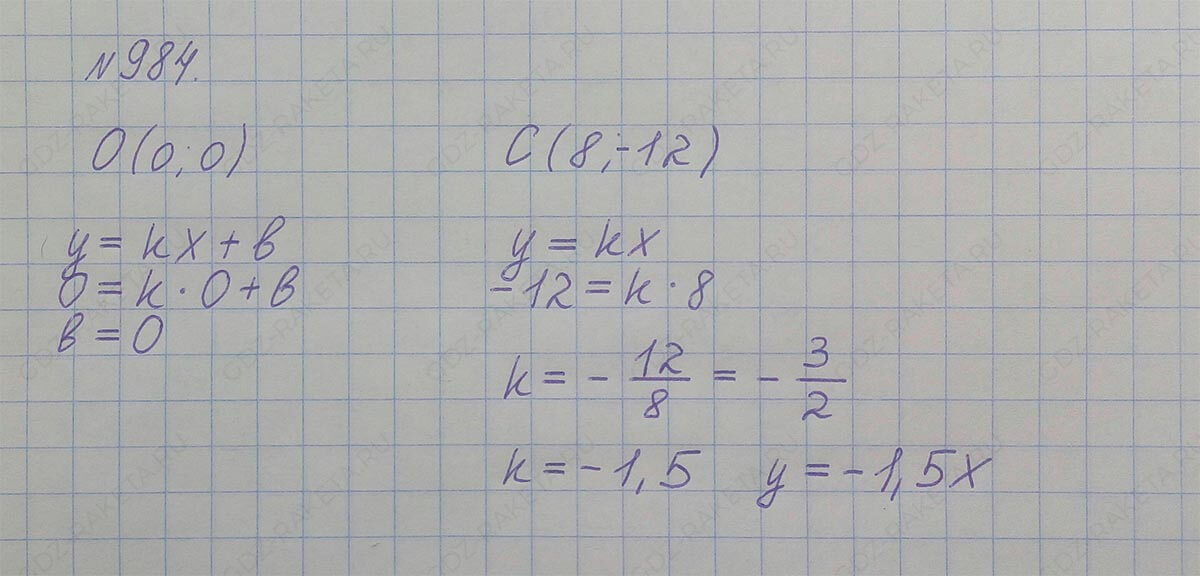 №984.
O(0;0)
y = kx + b
0 = k · 0 + b
b = 0
C(8;-12)
y = kx
-12 = k · 8
k = - 12/8 = - 3/2
k = -1,5 y = -1,5x
GDZ-RAKETA.RU